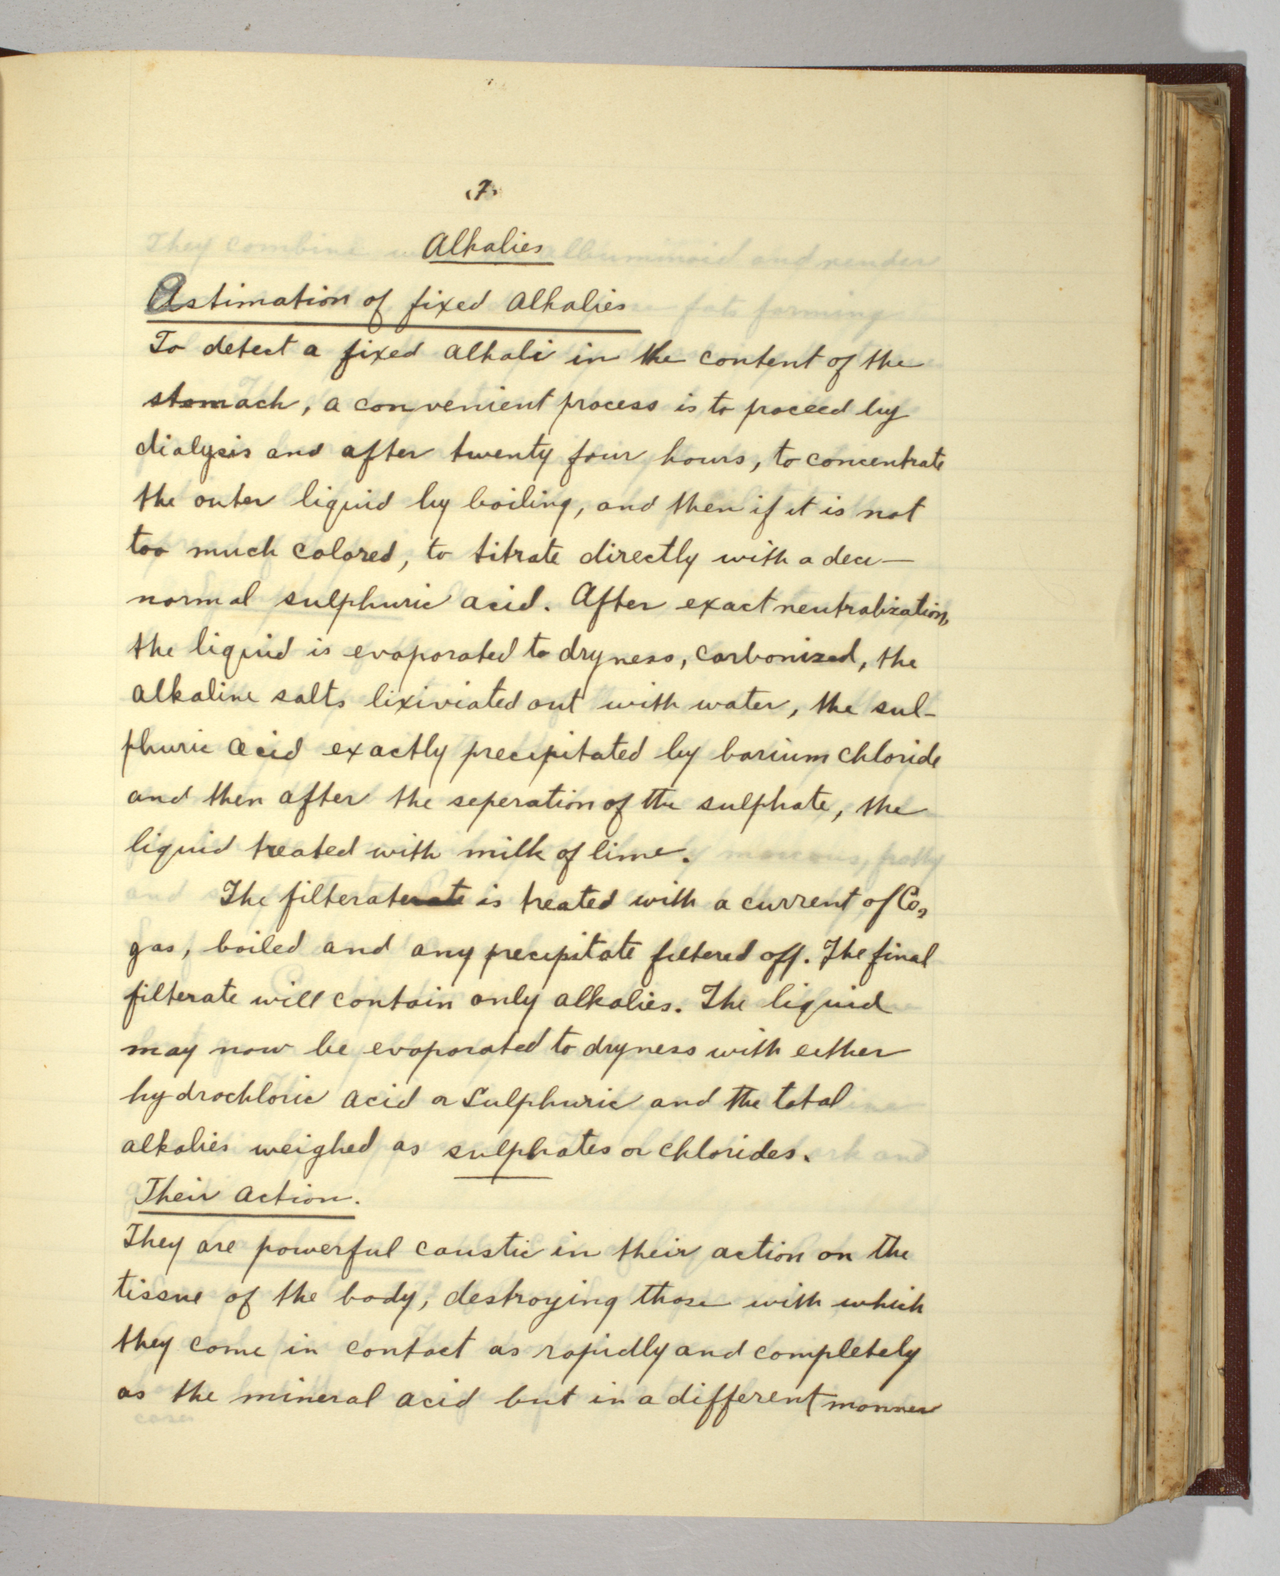 7.
Alkalies
Astimation of fixed alkalies
To detect a fixed alkali in the content of the
stomach, a convenient process is to proceed by
dialysis and after twenty four hours, to concentrate
the outer liquid by boiling, and then if it is not
too much colored, to titrate directly with a deci-
normal sulphuric acid. After exact neutralization,
the liquid is evaporated to dryness, carbonized, the
alkaline salts lixiviated out with water, the sul-
phuric acid exactly precipitated by barium chloride
and then after the seperation of the sulphate, the
liquid treated with milk of lime.
The filterate is treated with a current of Co2
gas, boiled and any precipitate filtered off. The final
filterate will contain only alkalies. The liquid
may now be evaporated to dryness with either
hydrochloric acid or Sulphuric and the total
alkalies weighed as sulphates or chlorides.
Their action.
They are powerful caustic in their action on the
tissue of the body, destroying those with which
they come in contact as rapidly and completely
as the mineral acid but in a different manner